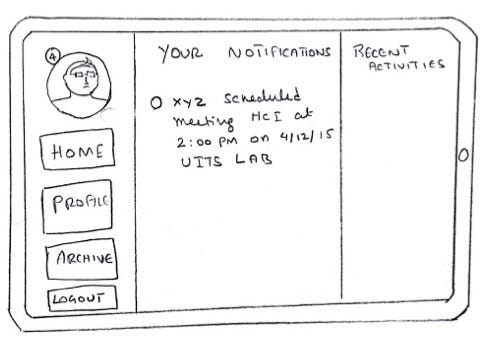 4
HOME
PROFILE
ARCHIVE
LOGOUT
YOUR NOTIFICATIONS
O XYZ scheduled
meeting HCI at
2:00 PM on 4/12/15
UITS LAB
RECENT
ACTIVITIES